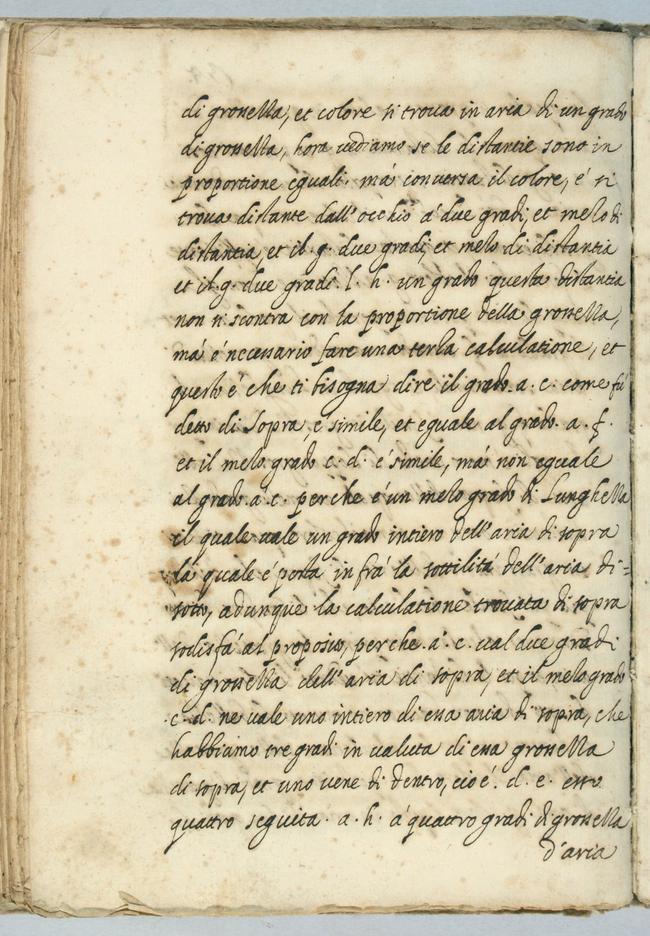 di grossezza, et colore si troua in aria di un grado
di grossezza, hora uediamo se le distantie sono in
proportione eguali. má conuersa il colore, é si
troua distante dall' occhio á due gradi, et mezo di
distantia, et il .g. due gradi, et mezo di distantia
et il .g. due gradi. l. h. un grado questa distantia
non si scontra con la proportione della grossezza,
má é necessario fare una terza calculatione, et
questo é che ti bisogna dire il grado .a. c. come fú
detto di sopra, é simile, et eguale al grado .a. f.
et il mezo grado c. d. é simile, má non eguale
al grado .a. c. perche é un mezo grado di Lunghezza
il quale uale un grado intiero dell' aria di sopra
la quale é posta in frá la sottilitá dell' aria di=
sotto, adunque la calculatione trouata di sopra
sodisfá al proposito, perche .a. c. ual due gradi
di grossezza dell' aria di sopra, et il mezo grado
.c. d. ne uale uno intiero di essa aria di sopra, che
habbiamo tre gradi in ualuta di essa grossezza
di sopra, et uno uene di dentro, cioé. d. e. esso
quattro seguita. a. h. á quattro gradi di grossezza
d'aria